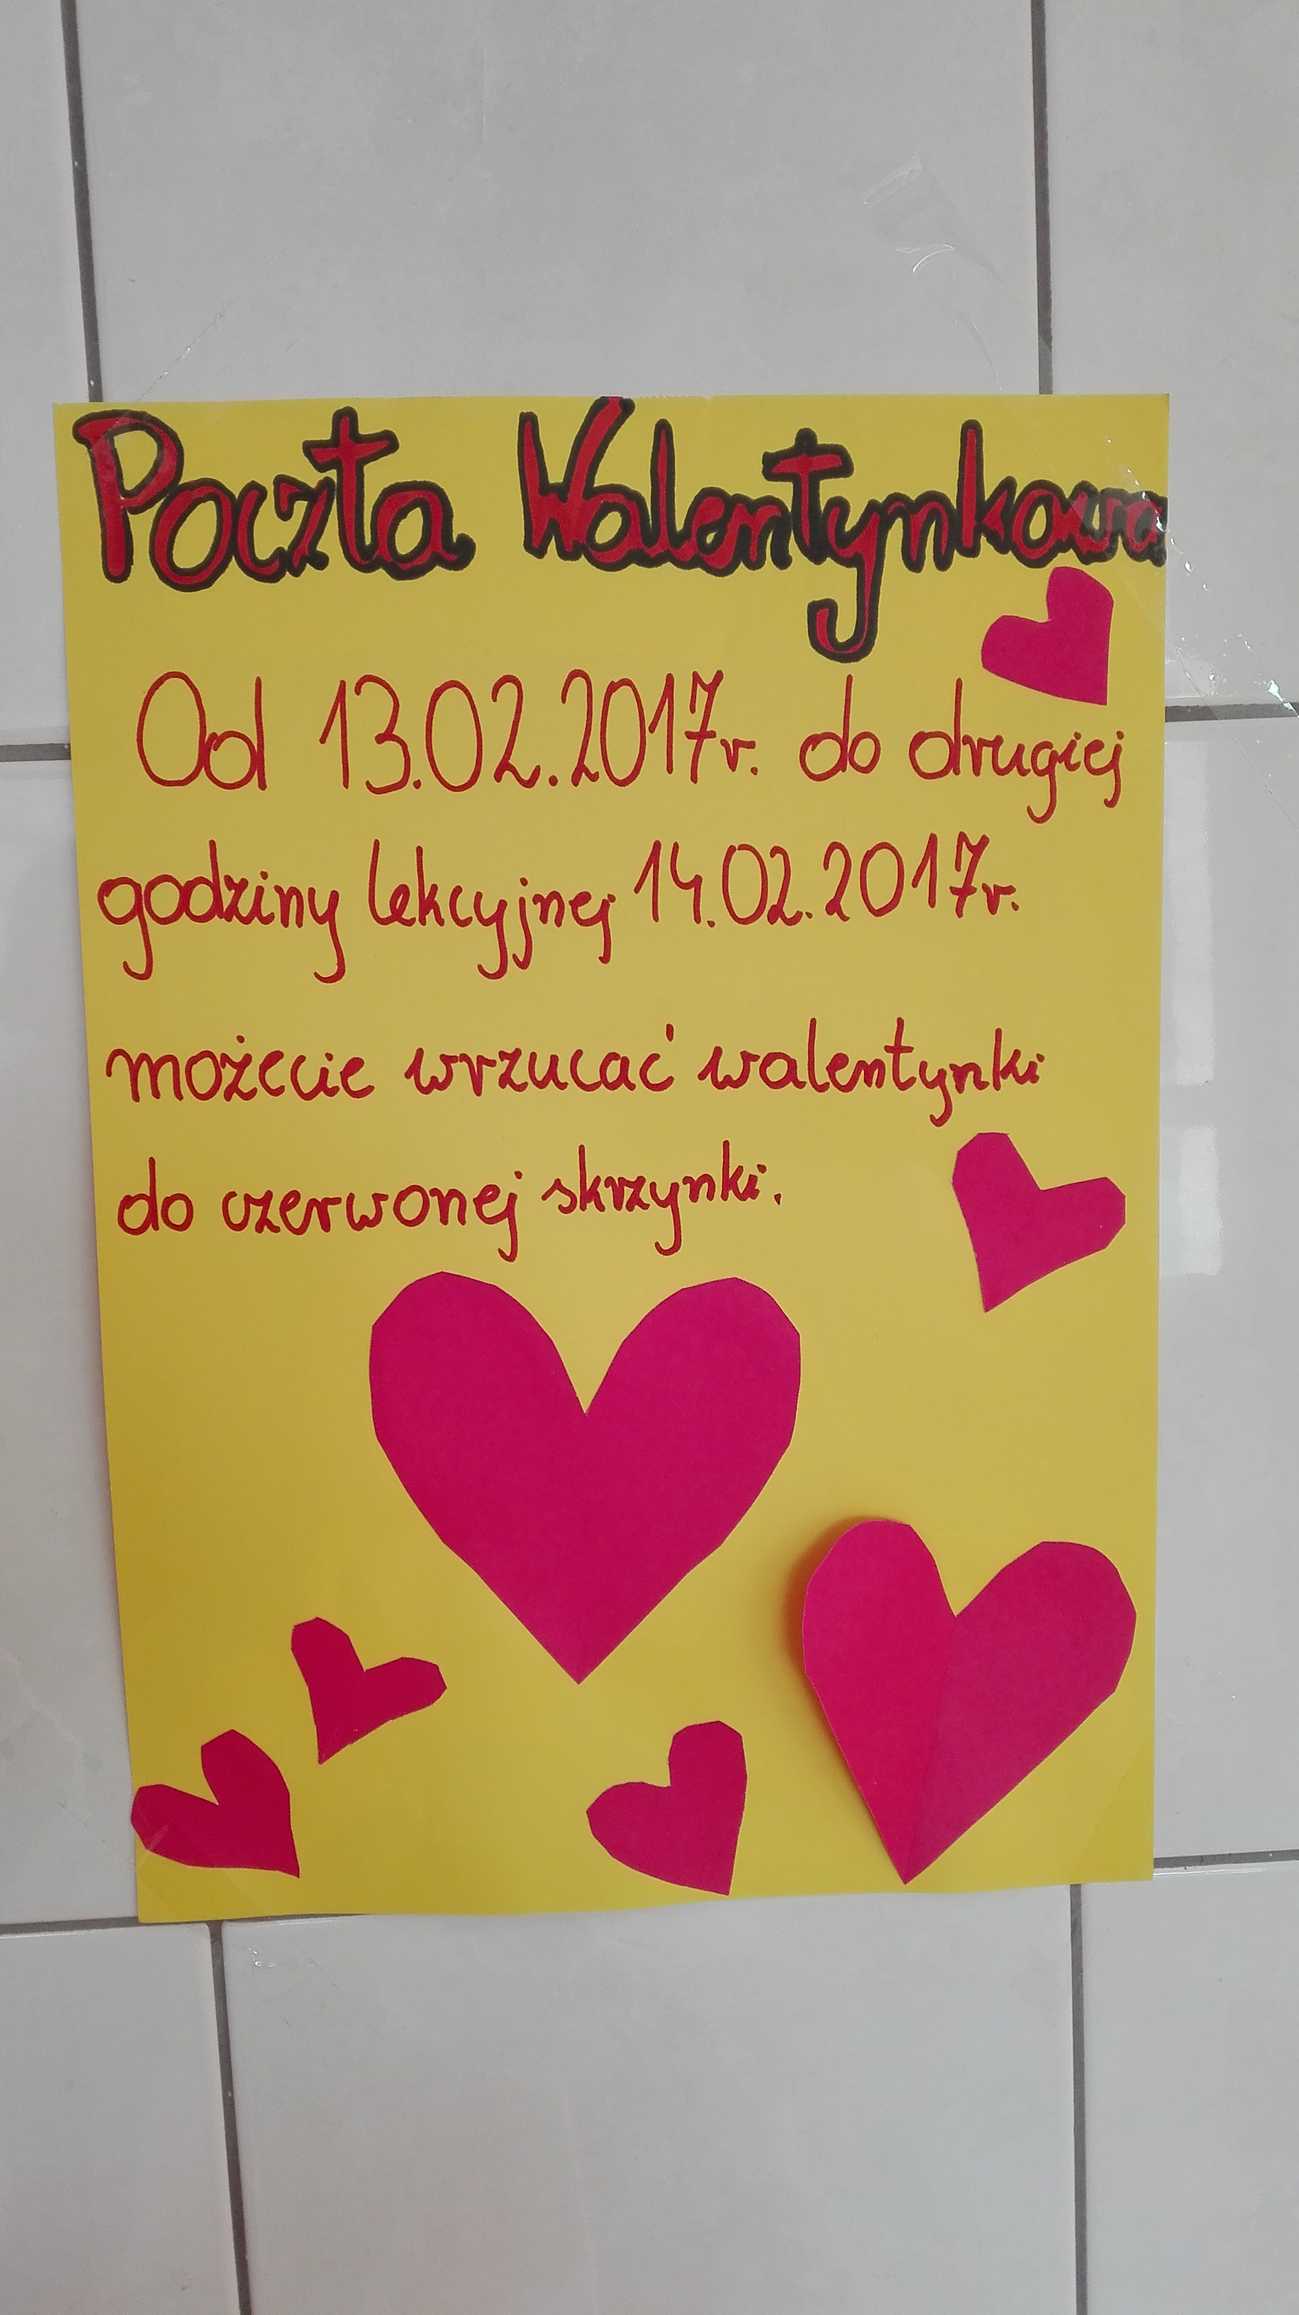 Poczta Walentynkowa
Od 13.02.2017r. do drugiej
godziny lekcyjnej 14.02.2017r.
możecie wrzucać walentynki
do czerwonej skrzynki.